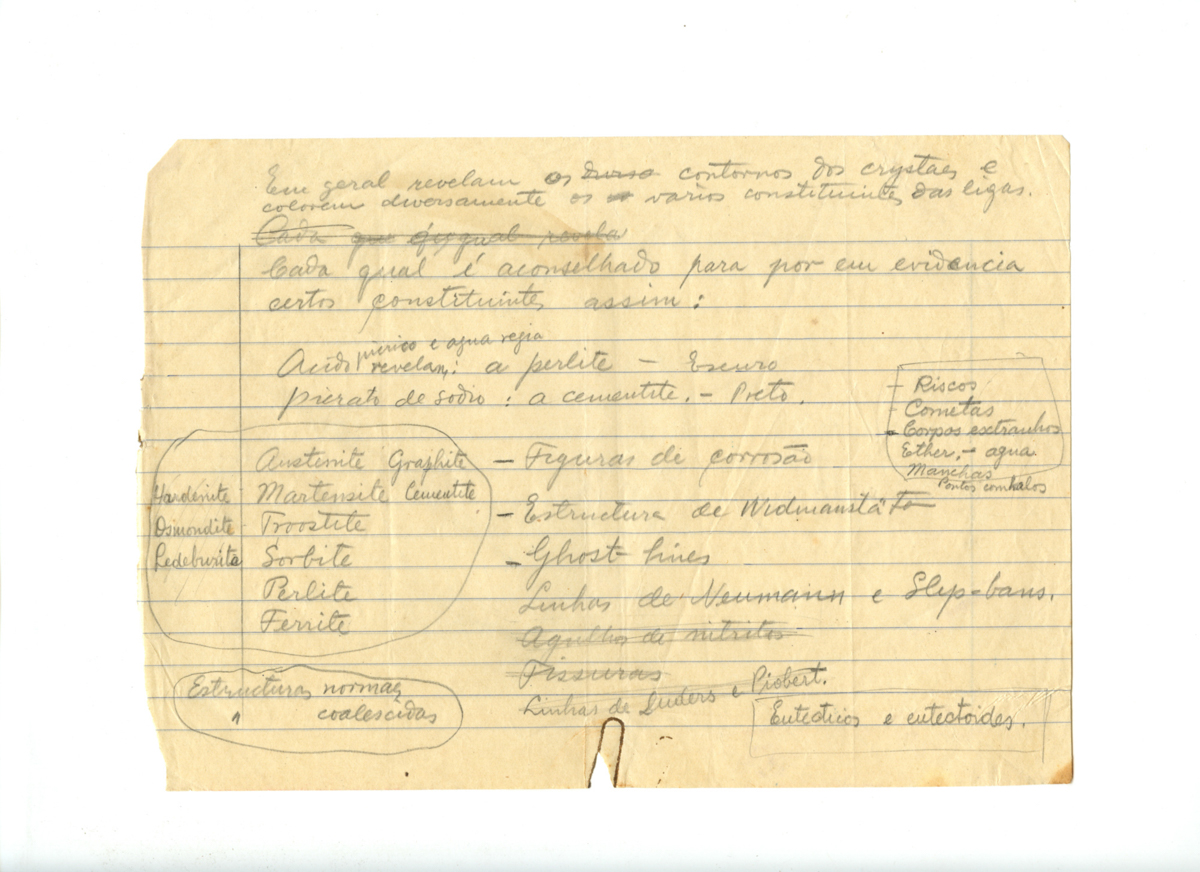 Em geral revelam os diverso contornos dos crystaes e
colorem diversamente os varios constituintes das ligas.
Cada que qual revela
Cada qual é aconselhado para por em evidencia
certos constituintes assim:
picrico e agua regia
Acido revelam: a perlite - Escuro
picrato de sodio: a cementite. - Preto.
- Riscos
- Cometas
- Corpos extranhos
Ether, - agua
Manchas
Pontos com halos
Austenite Graphite
Hardenite Martensite Cementite
Osmondite Troostite
Ledeburita Sorbite
Perlite
Ferrite
- Figuras de corrosão
- Estructura de Widmanstätto
- Ghost lines
Linhas de Neumann e Slip-bans.
Agulhas de nitritos
Fissuras
Linhas de Luders e Piobert.
Estructuras normaes
coalescidas
Eutecticos e eutectoides.